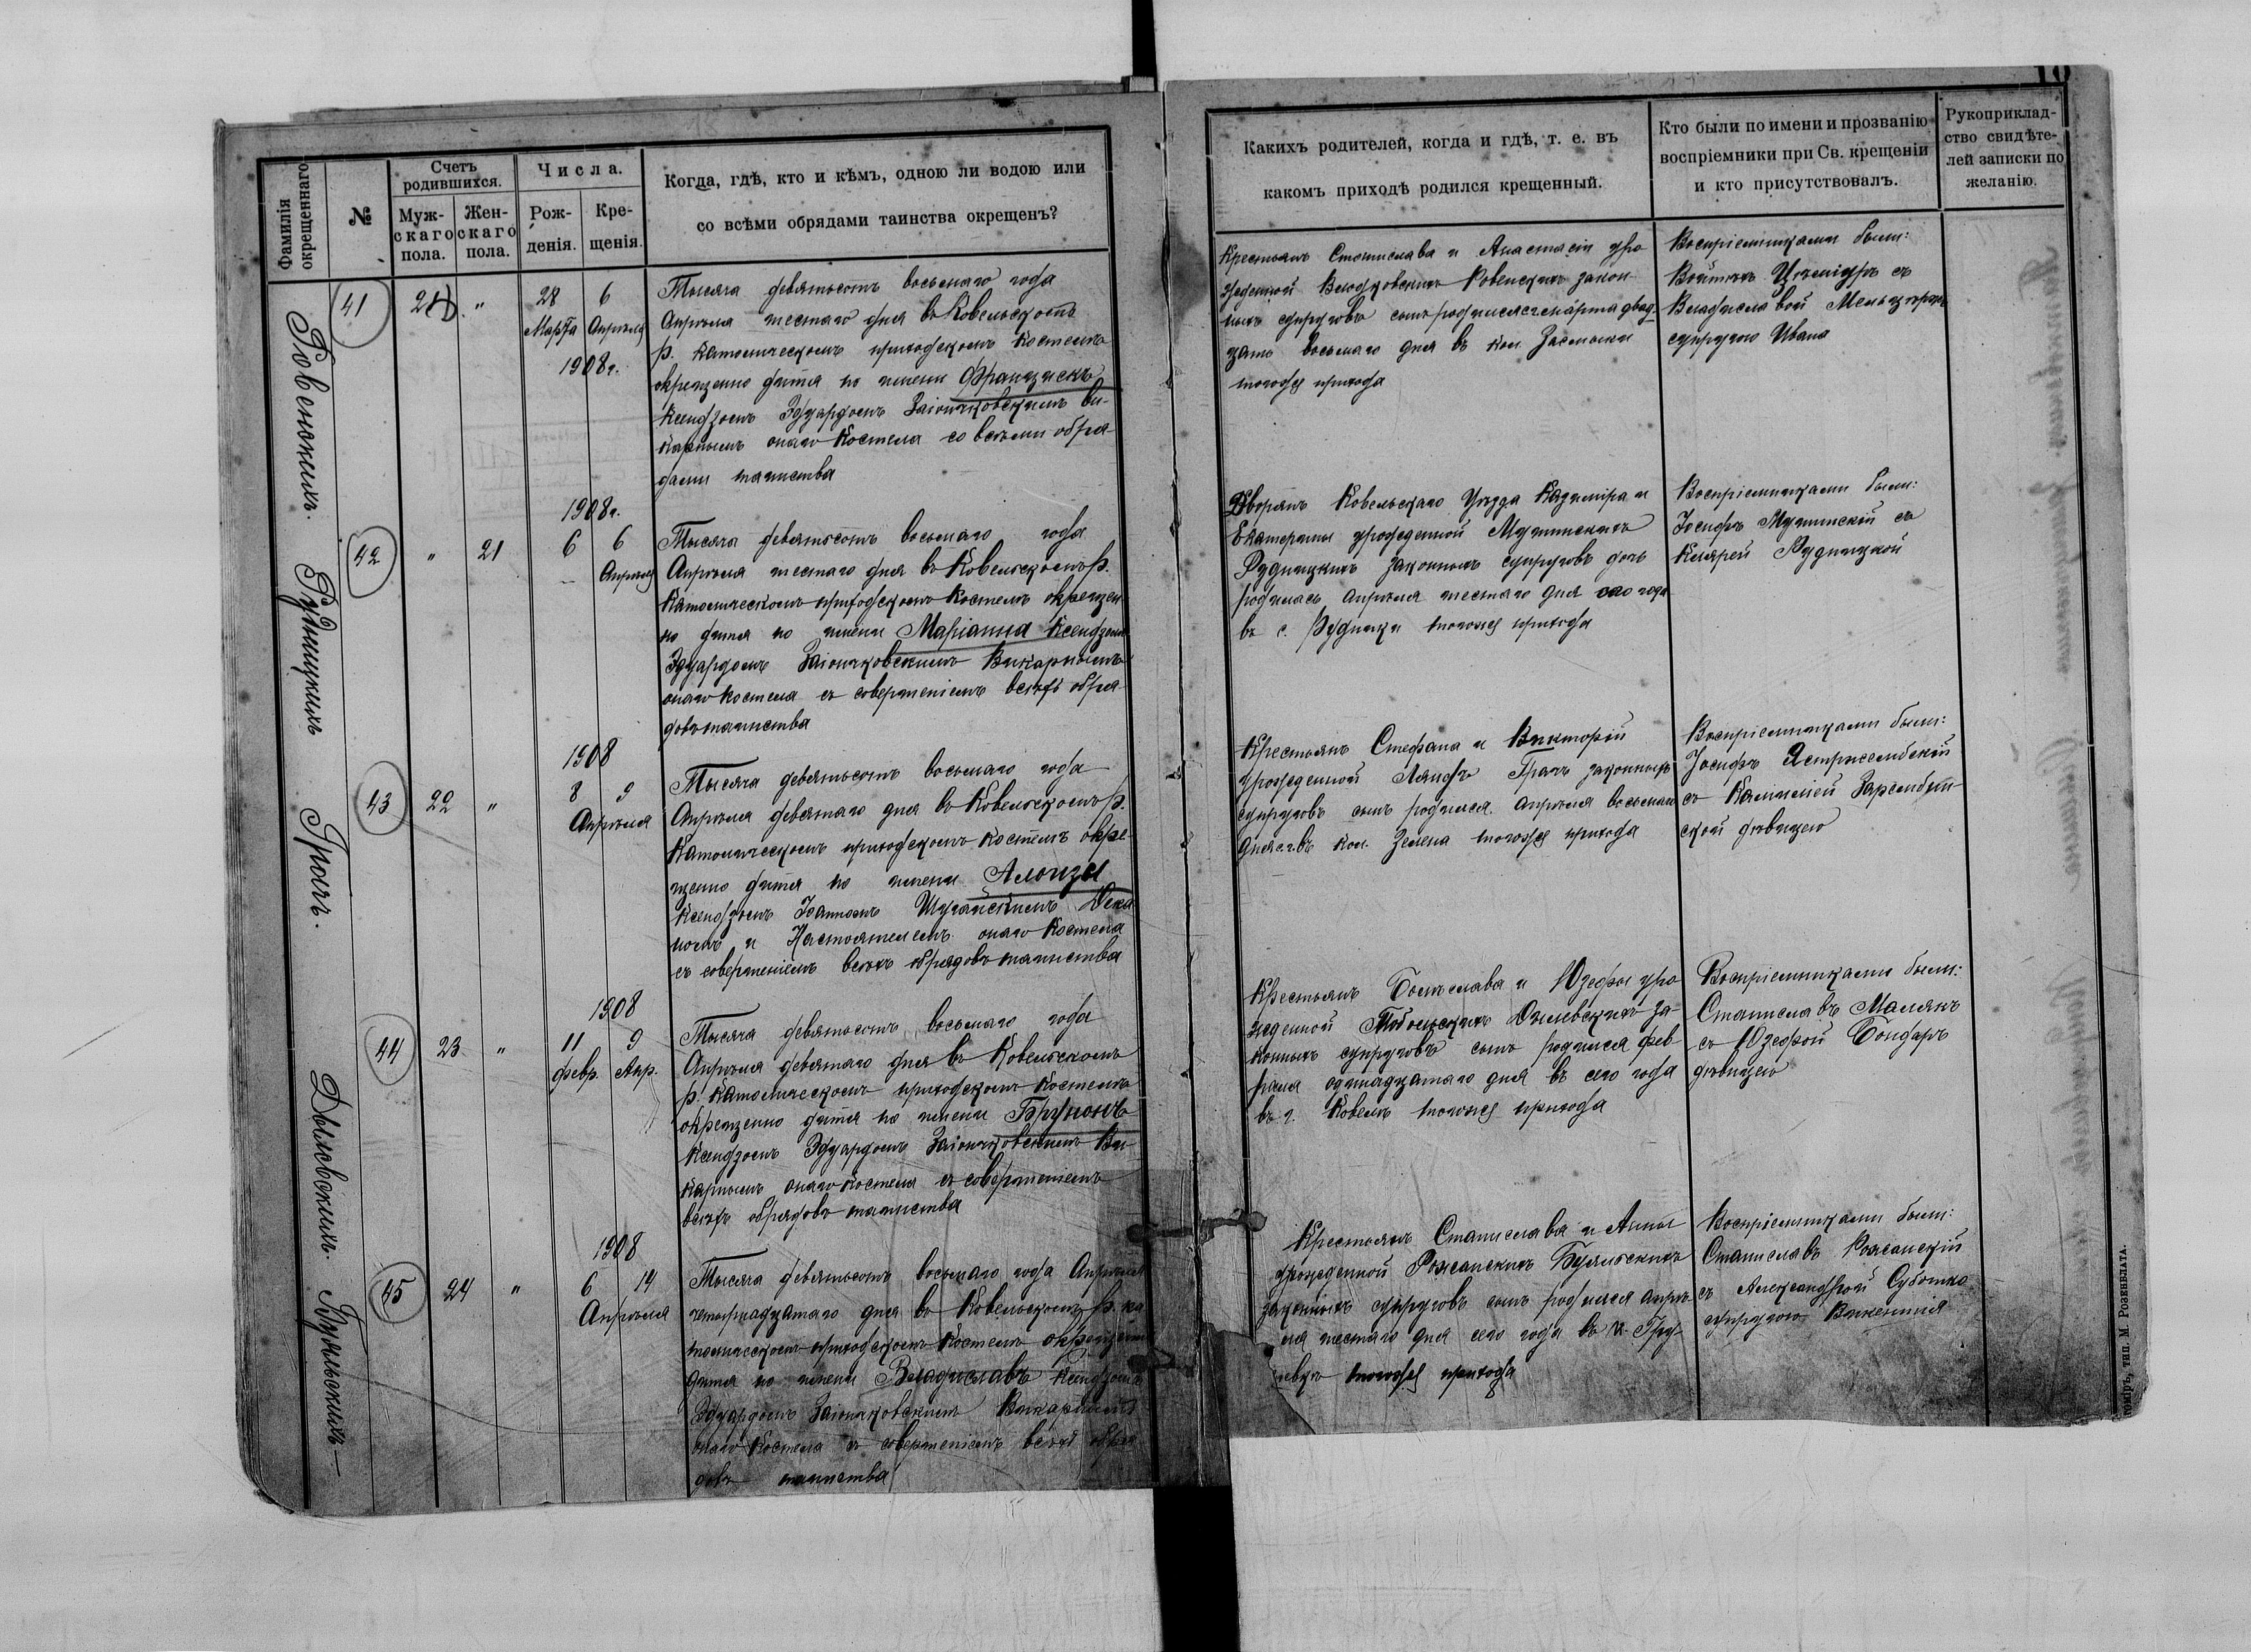 10
Фамилія окрещеннаго.
№
Счетъ родившихся.
Мужскаго пола.
Женскаго пола.
Числа.
Рожденія.
Крещенія.
Когда, гдѣ, кто и кѣмъ, одною ли водою или
со всѣми обрядами таинства окрещенъ?
Какихъ родителей, когда и гдѣ, т. е. въ
какомъ приходѣ родился крещенный.
Кто были по имени и прозванію
воспріемники при Св. крещеніи
и кто присутствовалъ.
Рукоприклад-
ство свидѣте-
лей записки по
желанію.
41
21
"
28 6
Марта Апрѣля
1908 г.
Тысяча девятьсотъ восьмаго года
Апрѣля шестаго дня въ Ковельскомъ
р. католическомъ приходскомъ костелѣ
окрещено дитя по имени Францискъ
Ксендзомъ Эдуардомъ Заіончковскимъ Ви-
карнымъ онаго костела со всѣми обря-
дами таинства
Крестьянъ Станислава и Анастасіи уро
жденной Ровенскихъ закон
ныхъ супруговъ сынъ родился марта двад-
цать восьмаго дня въ кол. Засмыки
тогоже прихода
Воспріемниками были:
Войтѣхъ съ
Владиславой Мельцаръ
супругою Ивана
Рудницкихъ
42
"
21
1908 г.
6 6
Апрѣля
Тысяча девятьсотъ восьмаго года
Апрѣля шестаго дня въ Ковельскомъ р.
католическомъ приходскомъ костелѣ окрещен
но дитя по имени Маріанна Ксендзомъ
Эдуардомъ Заіончковскимъ Викарнымъ
онаго костела съ совершеніемъ всѣхъ обря
довъ таинства
Дворянъ Ковельскаго Уѣзда Казиміра и
Екатерины урожденной
Рудницкихъ законныхъ супруговъ дочь
родилась апрѣля шестаго дня сего года
въ с. Рудники тогоже прихода
Воспріемниками были:
Іосифъ съ
Клярей Рудницкой
Грачъ.
43
22
"
1908
8 9
Апрѣля
Тысяча девятьсотъ восьмаго года
Апрѣля девятаго дня въ Ковельскомъ р.
католическомъ приходскомъ костелѣ окре
щено дитя по имени Алоизы
Ксендзомъ Іоанномъ Дека
номъ и Настоятелемъ онаго костела
съ совершеніемъ всѣхъ обрядовъ таинства
Крестьянъ Стефана и Викторіи
урожденной Грачъ законныхъ
супруговъ сынъ родился апрѣля восьмаго
дня въ кол. Зелена тогоже прихода
Воспріемниками были:
Іосифъ Ястржембскій
съ Заремб
ской дѣвицею
Дылевскихъ.
44
23
"
1908
11 9
февр. Апр.
Тысяча девятьсотъ восьмаго года
Апрѣля девятаго дня въ Ковельскомъ
р. католическомъ приходскомъ костелѣ
окрещено дитя по имени Брунонъ
Ксендзомъ Эдуардомъ Заіончковскимъ Ви-
карнымъ онаго костела съ совершеніемъ
всѣхъ обрядовъ таинства
Крестьянъ Болеслава и Юзефы уро
жденной Дылевскихъ за-
конныхъ супруговъ сынъ родился фев-
раля одинадцатаго дня сего года
въ г. Ковелѣ тогоже прихода
Воспріемниками были:
Станиславъ Малякъ
съ Юзефой Бондаръ
дѣвицею
45
24
"
1908
6 14
Апрѣля
Тысяча девятьсотъ восьмаго года Апрѣля
четырнадцатаго дня въ Ковельскомъ р. ка
толическомъ приходскомъ костелѣ окрещено
дитя по имени Владиславъ Ксендзомъ
Эдуардомъ Заіончковскимъ Викарнымъ
онаго костела съ совершеніемъ всѣхъ обря
довъ таинства
Крестьянъ Станислава и Анны
урожденной Рожанскихъ
законныхъ супруговъ сынъ родился апрѣ-
ля шестаго дня сего года въ
тогоже прихода
Воспріемниками были:
Станиславъ Рожанскій
съ Александрой Суботко
супругою Викентія
тип. М. Розенблата.